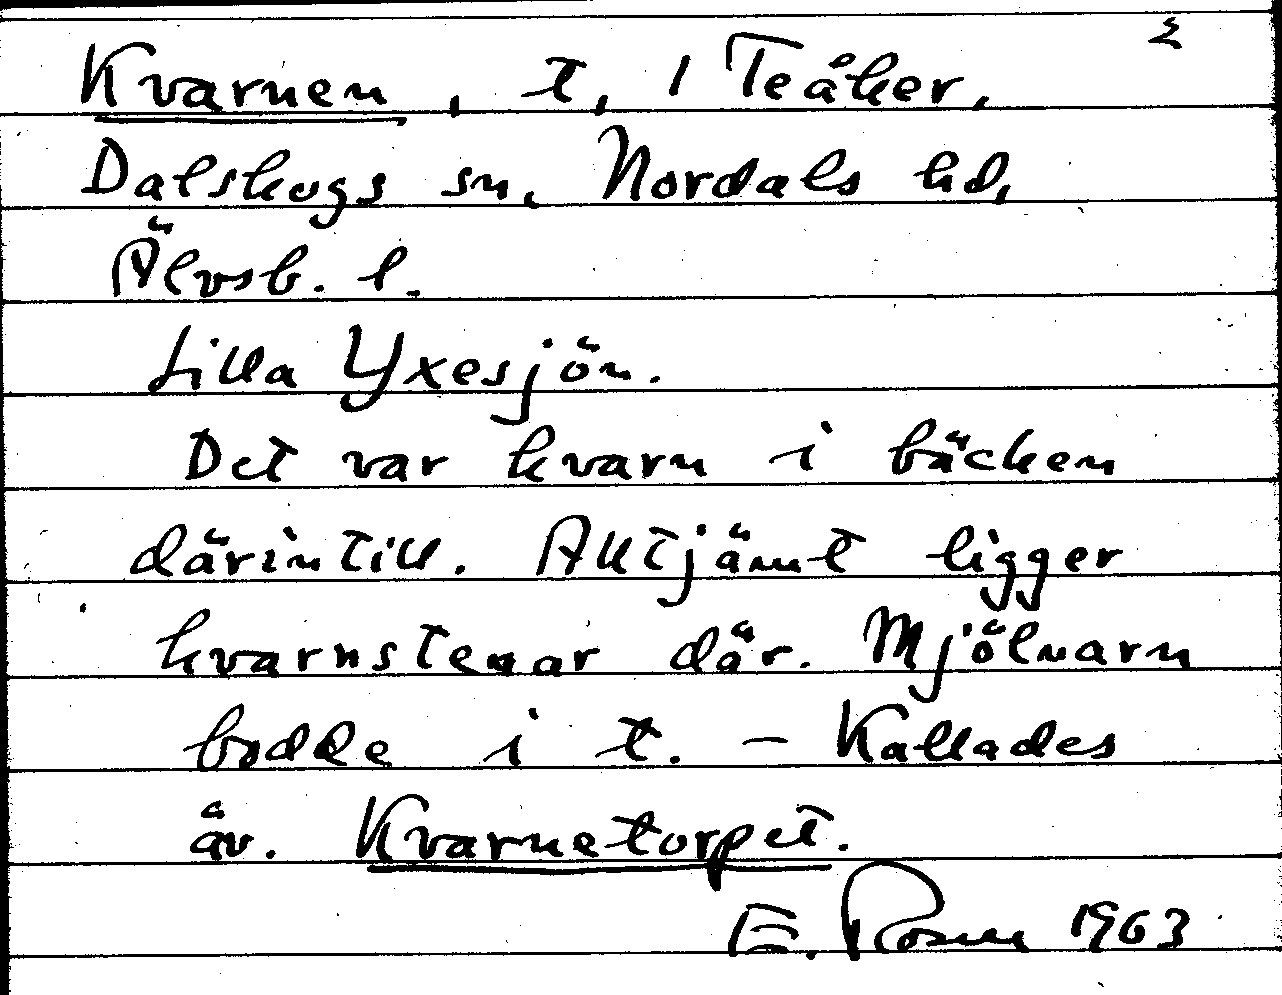 Σ
Kvarnen, t, 1 Teåker,
Dalskogs sn, Nordals hd,
Älvsb. l.
Lilla Yxesjön.
Det var kvarn i bäcken
därintill. Alltjämt ligger
kvarnstenar där. Mjölnarn
bodde i t. - Kallades
äv. Kvarnetorpet.
E. Rosell 1963